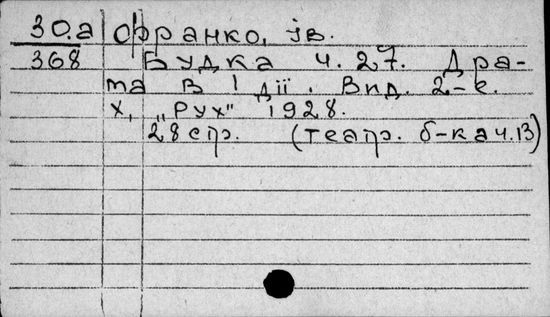 30.а Франко, Ів.
368 Будка ч. 27. Дра-
ма в 1 дії. Вид. 2-е.
Х, "Рух" 1928.
28 стр. (театр. б-ка ч. 13)